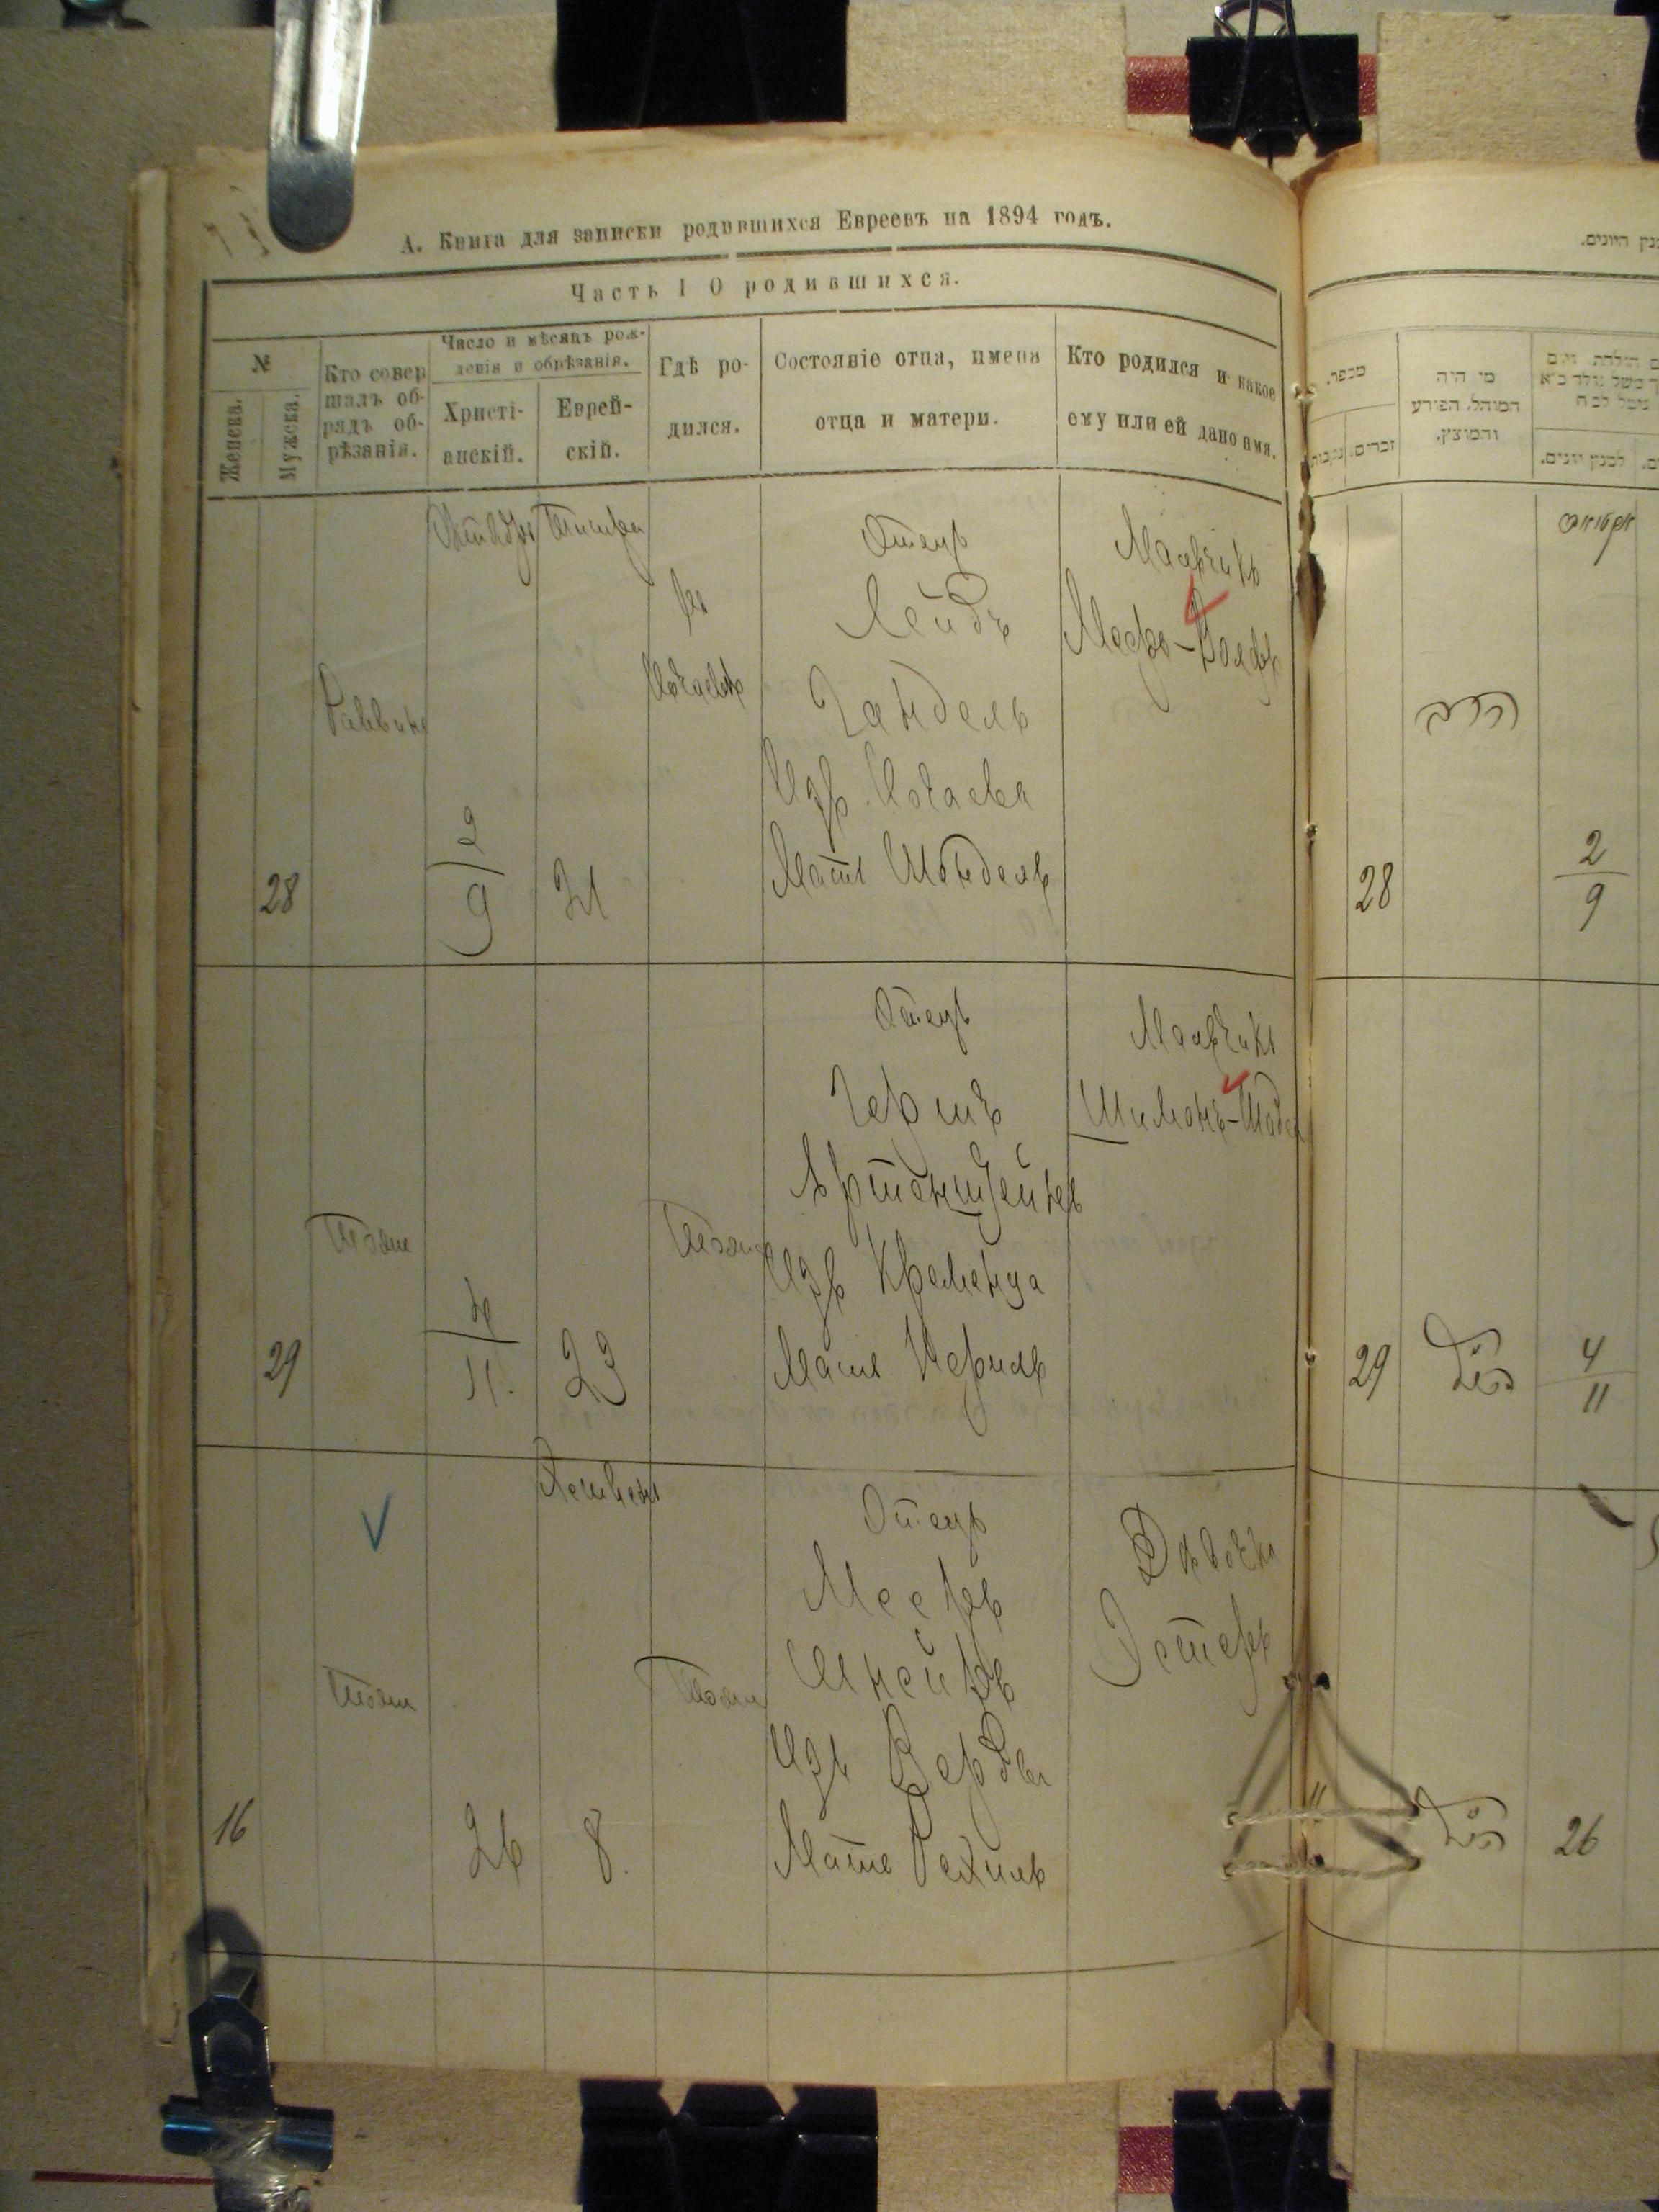 А. Книга для записки родившихся Евреевъ на 1894 годъ.
Часть I О родившихся.
№
Женска.
Мужска.
Кто совер
шалъ об-
рядъ об-
рѣзанія.
Число и мѣсяцъ рож-
денія и обрѣзанія.
Христі-
анскій.
Еврей-
скій.
Гдѣ ро-
дился.
Состояніе отца, имена
отца и матери.
Кто родился и какое
ему или ей дано имя.
28
Раввинъ
Октябрь
2
9
Тишрей
21
въ
Почаевѣ
Отецъ
Лейбъ
Гандель
Изъ Почаева
Мать Шендель
Мальчикъ
29
Тоже
4
11.
23
Тоже
Отецъ
Гершъ
Изъ Кременца
Мать Перель
Мальчикъ
16
Тоже
26
Хешвенъ
8.
Тоже
Отецъ
Мееръ
Шнейеръ
Изъ Вербы
Мать Рехиль
Дѣвочка
Эстеръ
מספר.
זכרים.
נקבות
מי היה
המוהל, הפורע
והמוצץ.
למנין יונים.
28
הרב
2
9
29
4
11
26